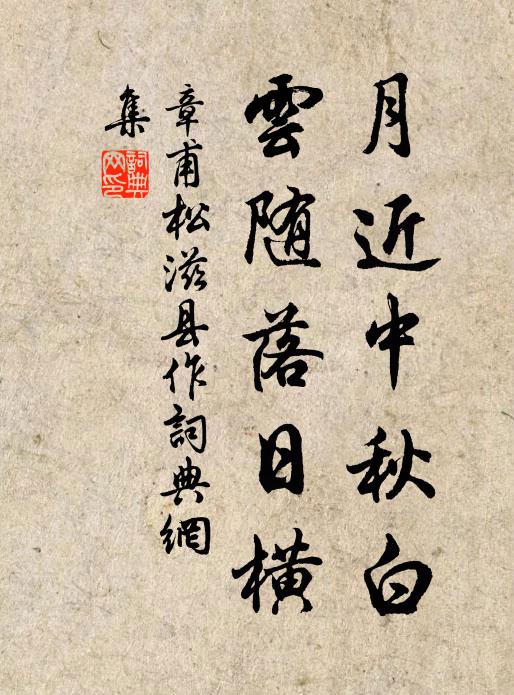 月近中秋白
雲随落日橫
章甫松滋县作詞典網
集
詞典
网印